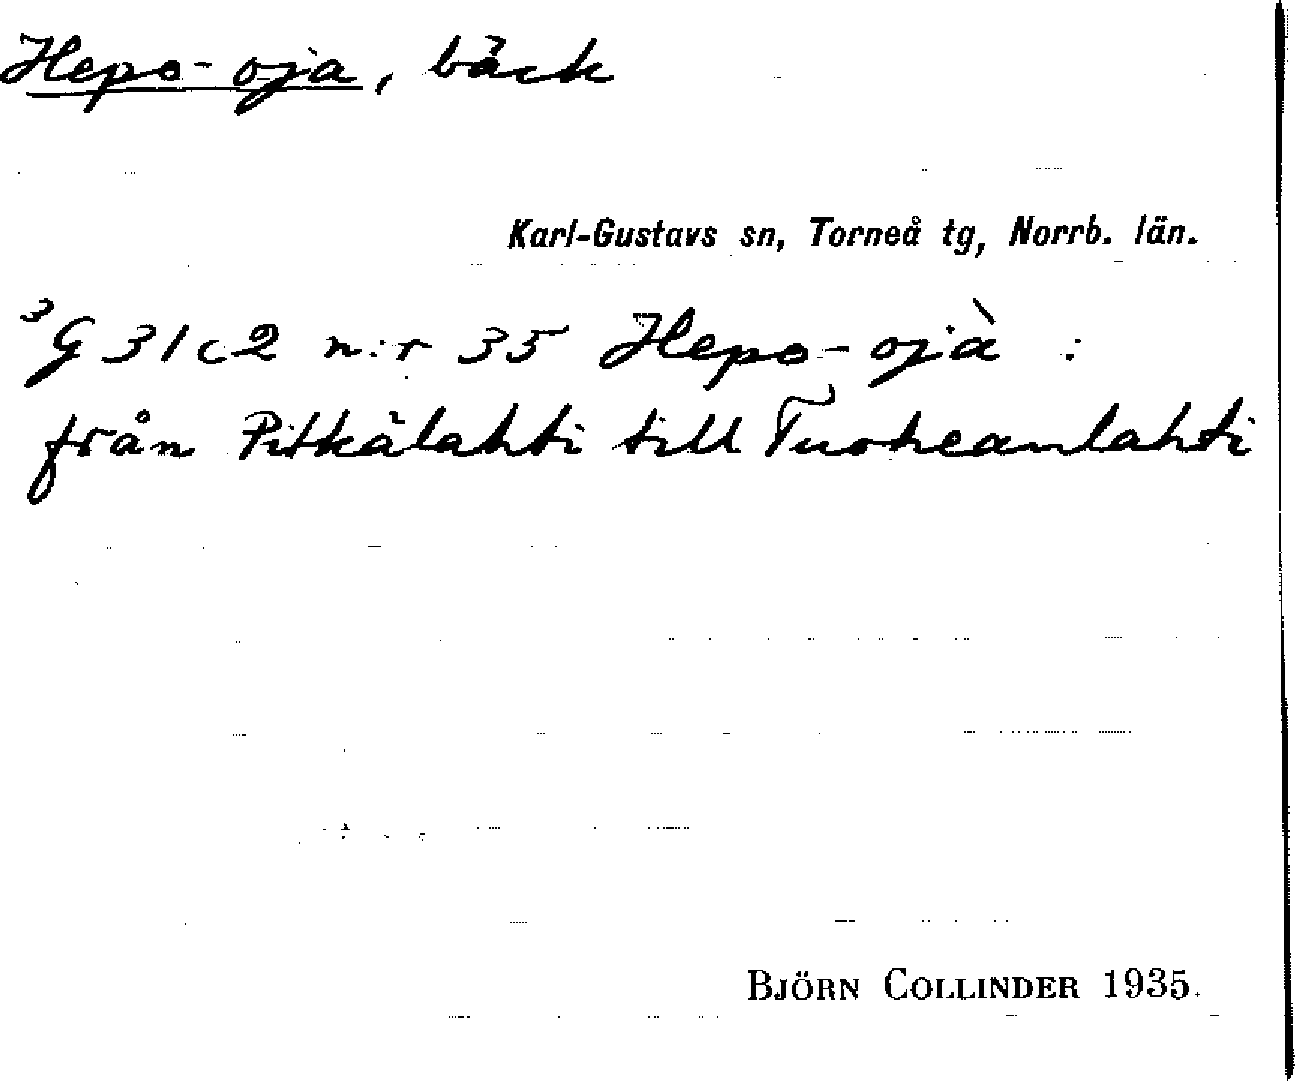 Hepo-oja, bäck
Karl-Gustavs sn, Torneå tg, Norrb. län.
³G 31c2 n:r 35 Hepo-ojà :
från Pitkälahti till Tuoheanlahti
BJÖRN COLLINDER 1935.